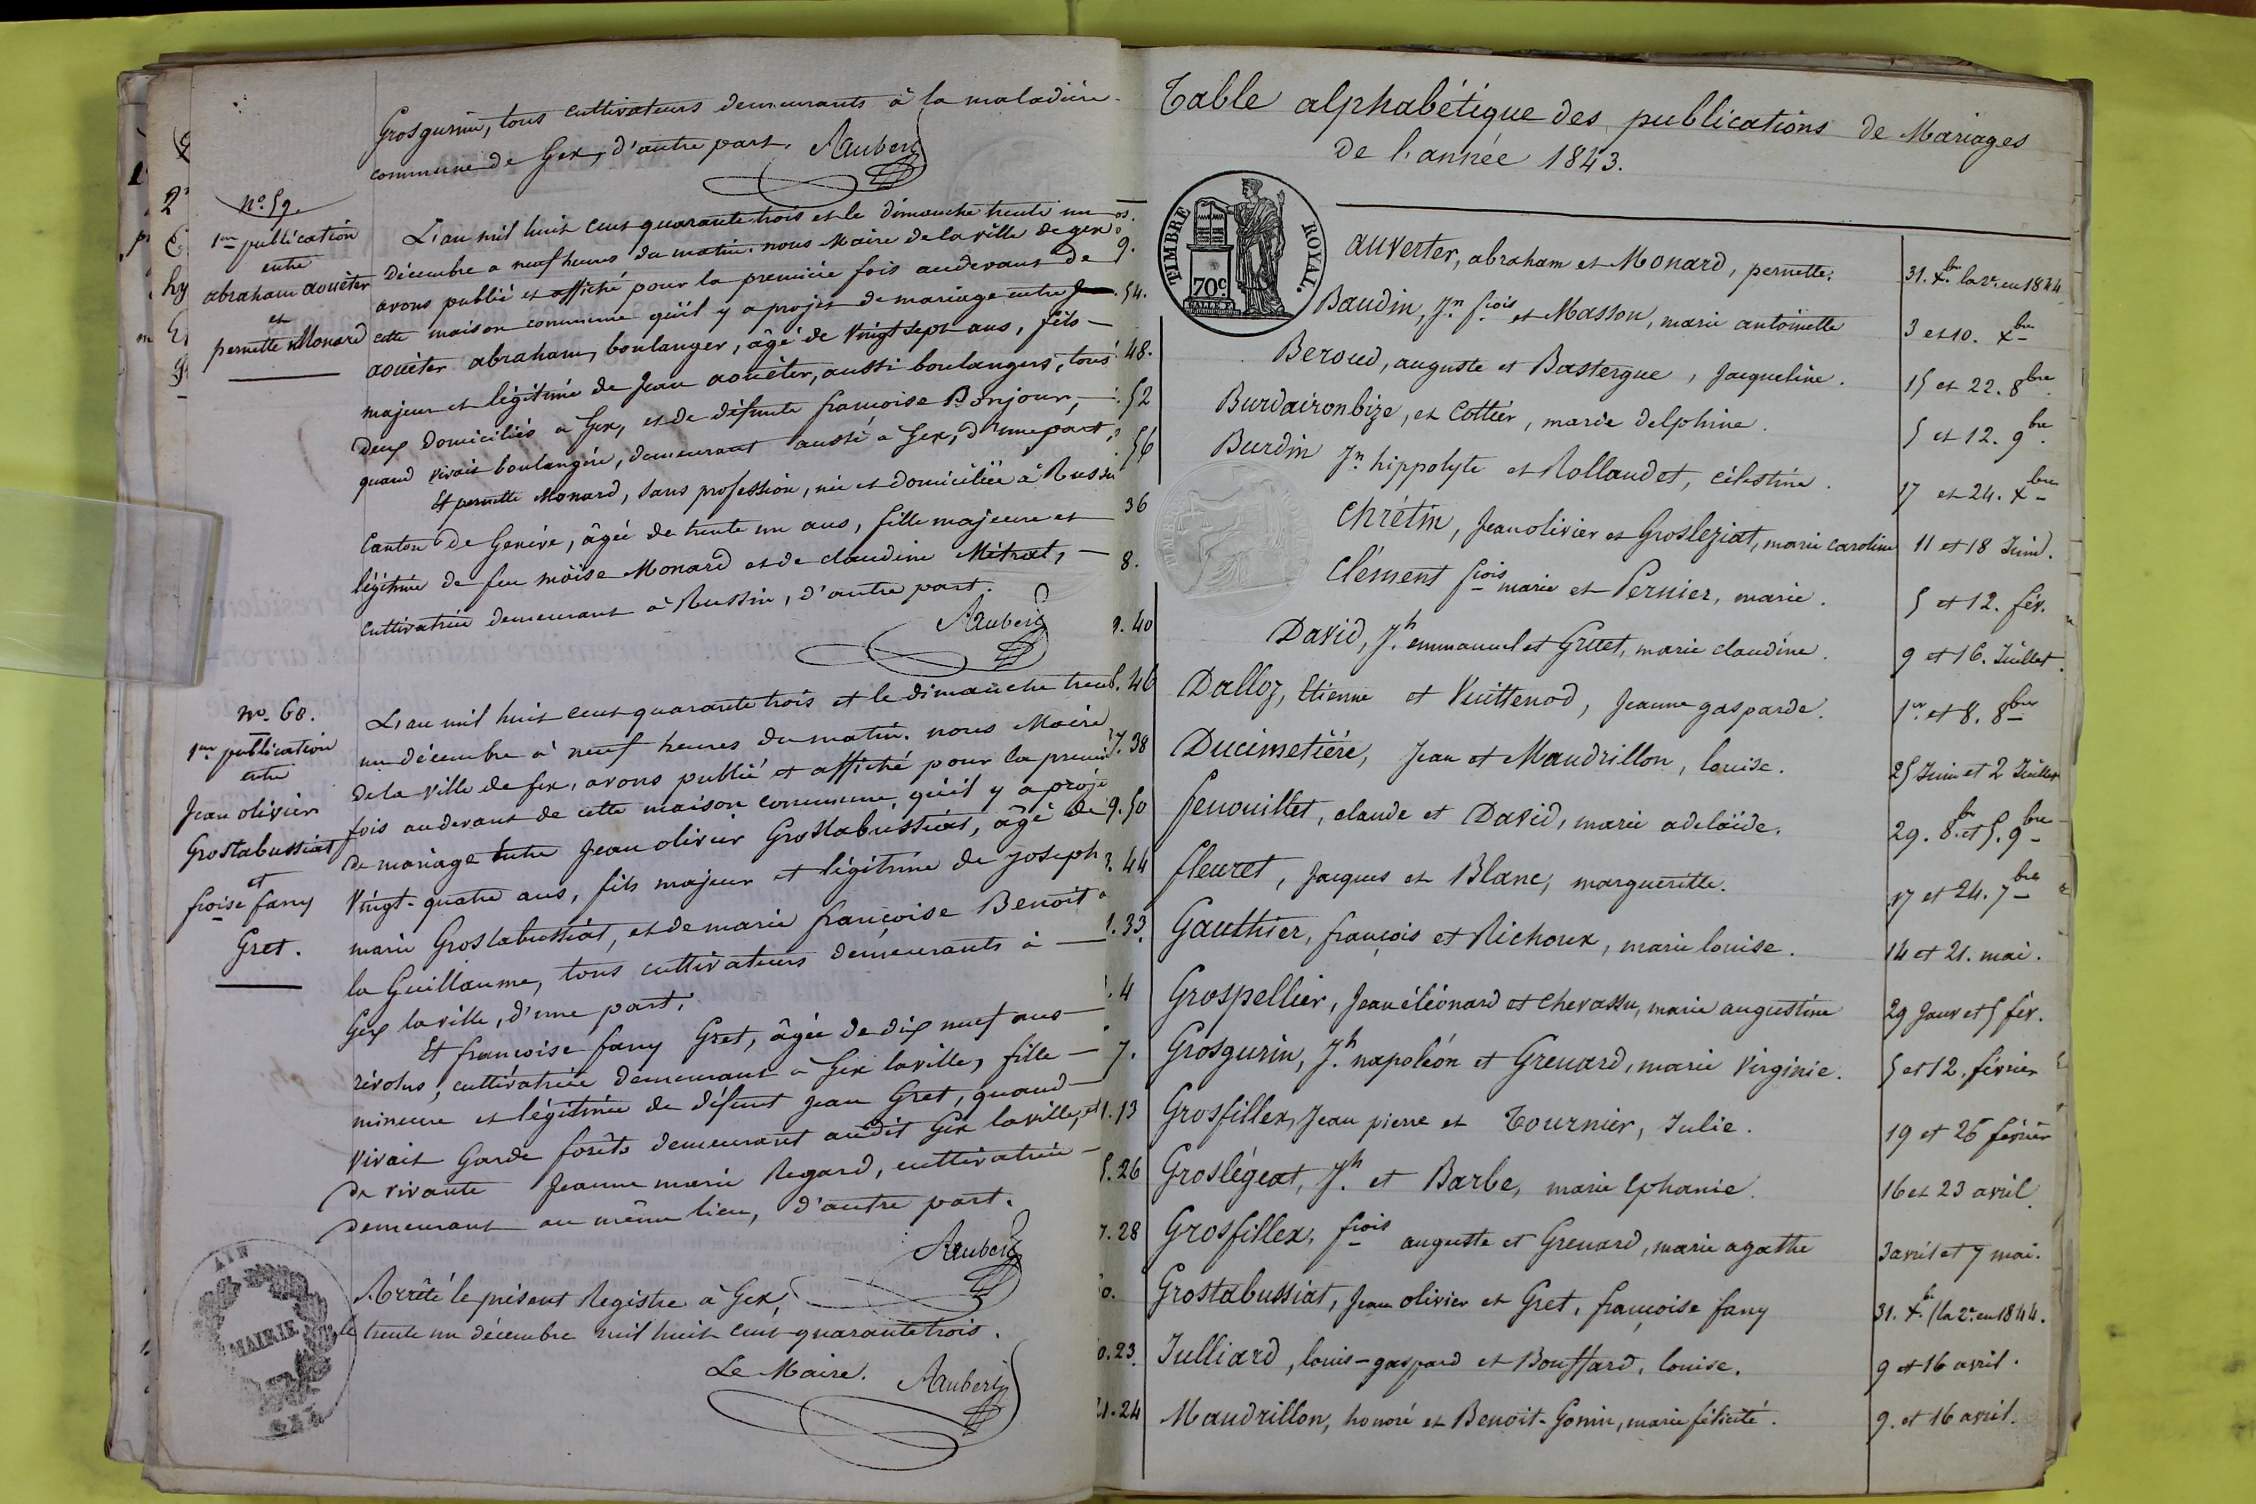 Grosgurin, tous cultivateurs demeurants à la maladière
commune de Gex, d'autre part. Aubert
No. 59.
1ere publication
entre
abraham aouèter
et
pernette Monard
L'an mil huit cent quarante trois et le dimanche trente un
décembre a neuf heures du matin. nous Maire de la ville de gex
avons publié et affiché pour la première fois audevant de
cette maison commune qu'il y a projet de mariage entre
aouèter abraham, boulanger, âgé de vingt sept ans, fils
majeur et légitime de Jean aouèter, aussi boulangers, tous
deux domiciliés à Gex, et de défunte françoise Bonjour,
quand vivait boulangère, demeurant aussi à Gex, d'une part,
Et pernette Monard, sans profession, née et domiciliée à Russin
Canton de Genève, âgée de trente un ans, fille majeure et
légitime de feu moïse Monard et de claudine Métral,
cultivatrice demeurant à Russin, d'autre part.
Aubert
No. 60.
1ere publication
entre
Jean olivier
Grostabussiat
et
froise fany
Gret.
L'an mil huit cent quarante trois et le dimanche trente
un décembre à neuf heures du matin. nous Maire
de la ville de Gex, avons publié et affiché pour la premiè
fois audevant de cette maison commune, qu'il y a proje
de mariage entre Jean olivier Grostabussiat, âgé de
Vingt-quatre ans, fils majeur et légitime de joseph
marie Grostabussiat, et de marie françoise Benoit à
la Guillaume, tous cultivateurs demeurants à
Gex la ville, d'une part;
Et françoise fany Gret, âgée de dix neuf ans
révolus, cultivatrice demeurant à Gex la ville, fille
mineure et légitime de défunt Jean Gret, quand
vivait Garde forêts demeurant audit Gex la ville, et
de vivante Jeanne marie Regard, cultivatrice
demeurant au même lieu, d'autre part.
Aubert
Arrêté le présent Registre à Gex,
le trente un décembre mil huit cent quarante trois.
Le Maire. Aubert
AIN
MAIRIE
GEX
Table alphabétique des publications de Mariages
de l'année 1843.
TIMBRE ROYAL.
70c.
auverter, abraham et Monard, pernette. 31. Xbre la 2e en 1844
54. Baudin, Jn. frois et Masson, marie antoinette 3 et 10. Xbre
48. Beroud, auguste et Bastergue, Jacqueline. 15 et 22. 8bre
52 Burdaironbize, et Cottier, marie delphine. 5 et 12. 9bre
56 Burdin Jn. hippolyte et Rollandet, célestine. 17 et 24. Xbre
36 Chrétin, Jean olivier et Grosleziat, marie caroline 11 et 18 Juin.
8. Clément frois marie et Pernier, marie. 5 et 12. fév.
9. 40 David, Jh. emmanuel et Gret, marie claudine. 9 et 16. Juillet.
46 Dalloz, Etienne et Vuittenod, Jeanne gasparde. 1er. et 8. 8bre
38 Ducimetière, Jean et Maudrillon, louise. 25 Juin et 2 Juillet
9. 50 fenouillet, claude et David, marie adelaïde. 29. 8bre et 5. 9bre
44 fleuret, Jacques et Blanc, marguerite. 17 et 24. 7bre
33. Gauthier, françois et Richoux, marie louise. 14 et 21. mai.
4 Grospellier, Jean éléonard et Chevassu, marie augustine 29 Janv et 5 fév.
7. Grosgurin, Jh. napoléon et Grenard, marie Virginie. 5 et 12. février
13 Grosfillex, Jean pierre et Tournier, Julie. 19 et 26 février
26 Groslégeat, Jh. et Barbe, marie Ephanie. 16 et 23 avril
28 Grosfillex, frois auguste et Grenard, marie agathe 3 avril et 7 mai.
Grostabussiat, Jean olivier et Gret, françoise fany 31. Xbre (la 2e en 1844.
23. Julliard, louis-gaspard et Bouffard, louise. 9 et 16 avril.
24 Maudrillon, honoré et Benoit-Gonin, marie félicité. 9. et 16 avril.